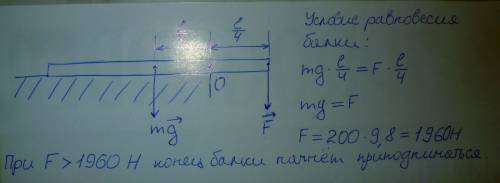 Условие равновесия
балки:
l/4 l/4
mg · l/4 = F · l/4
O
mg = F
mg F
F = 200 · 9,8 = 1960Н
При F > 1960 Н конец балки начнёт приподниматься.